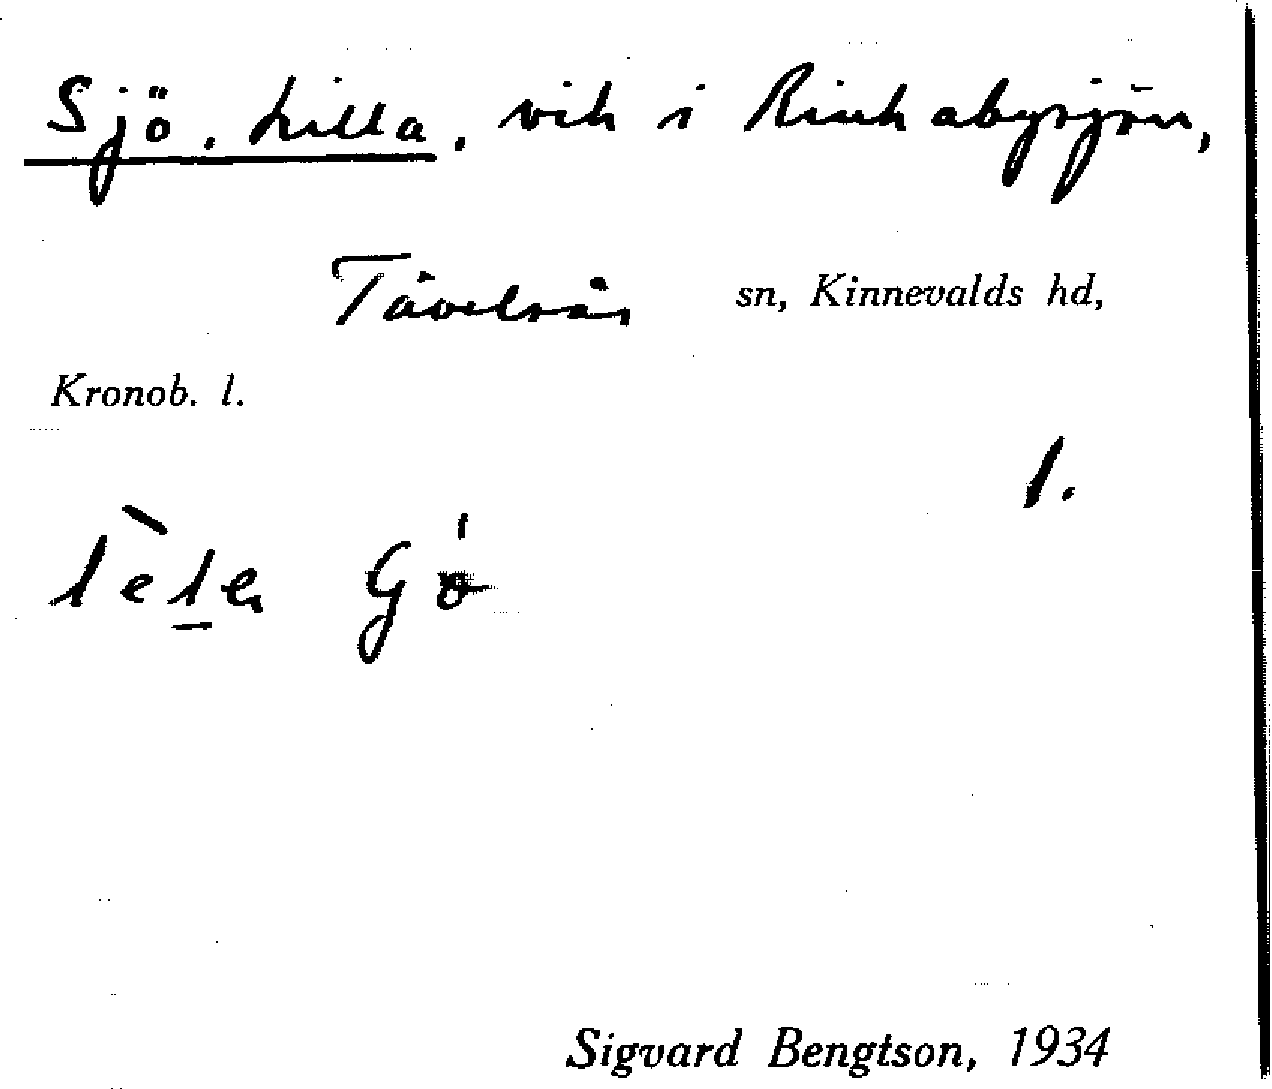 Sjö, Lilla, vik i Rinkabysjön,
Tävelsås sn, Kinnevalds hd,
Kronob. l.
1.
Sigvard Bengtson, 1934